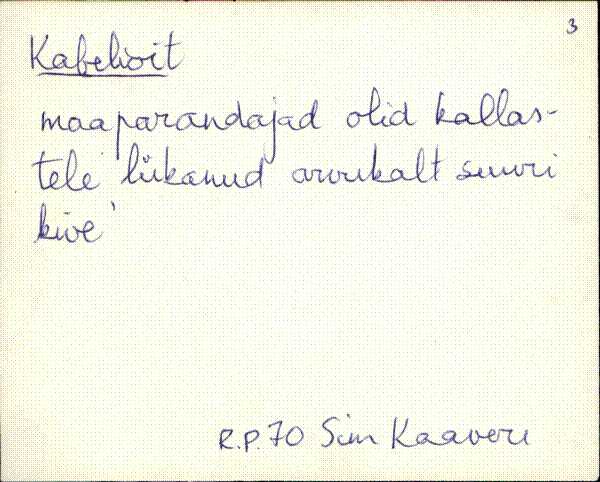 3
Kabeliõit
maaparandajad olid kallas-
tele lükanud arvukalt suuri
kive'
R.P.70 Sim Kaavere